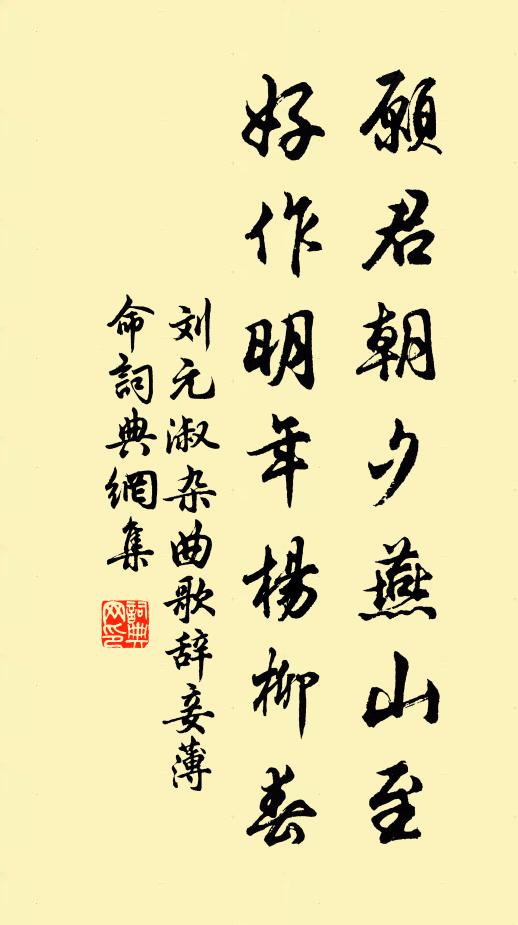 願君朝夕燕山至
好作明年楊柳春
刘元淑杂曲歌辞妾薄
命詞典網集
詞典網印